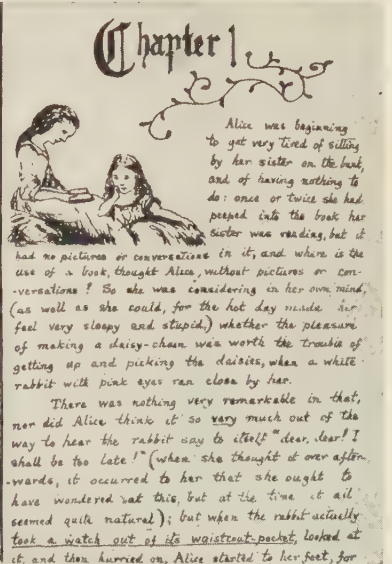 Chapter 1
Alice was beginning
to get very tired of sitting
by her sister on the bank,
and of having nothing to
do: once or twice she had
peeped into the book her
sister was reading, but it
had no pictures or conversations in it, and where is the
use of a book, thought Alice, without pictures or con-
-versations? So she was considering in her own mind,
(as well as she could, for the hot day made her
feel very sleepy and stupid,) whether the pleasure
of making a daisy-chain was worth the trouble of
getting up and picking the daisies, when a white
rabbit with pink eyes ran close by her.
There was nothing very remarkable in that,
nor did Alice think it so very much out of the
way to hear the rabbit say to itself "dear, dear! I
shall be too late!" (when she thought it over after-
-wards, it occurred to her that she ought to
have wondered at this, but at the time it all
seemed quite natural); but when the rabbit actually
took a watch out of its waistcoat-pocket, looked at
it, and then hurried on, Alice started to her feet, for